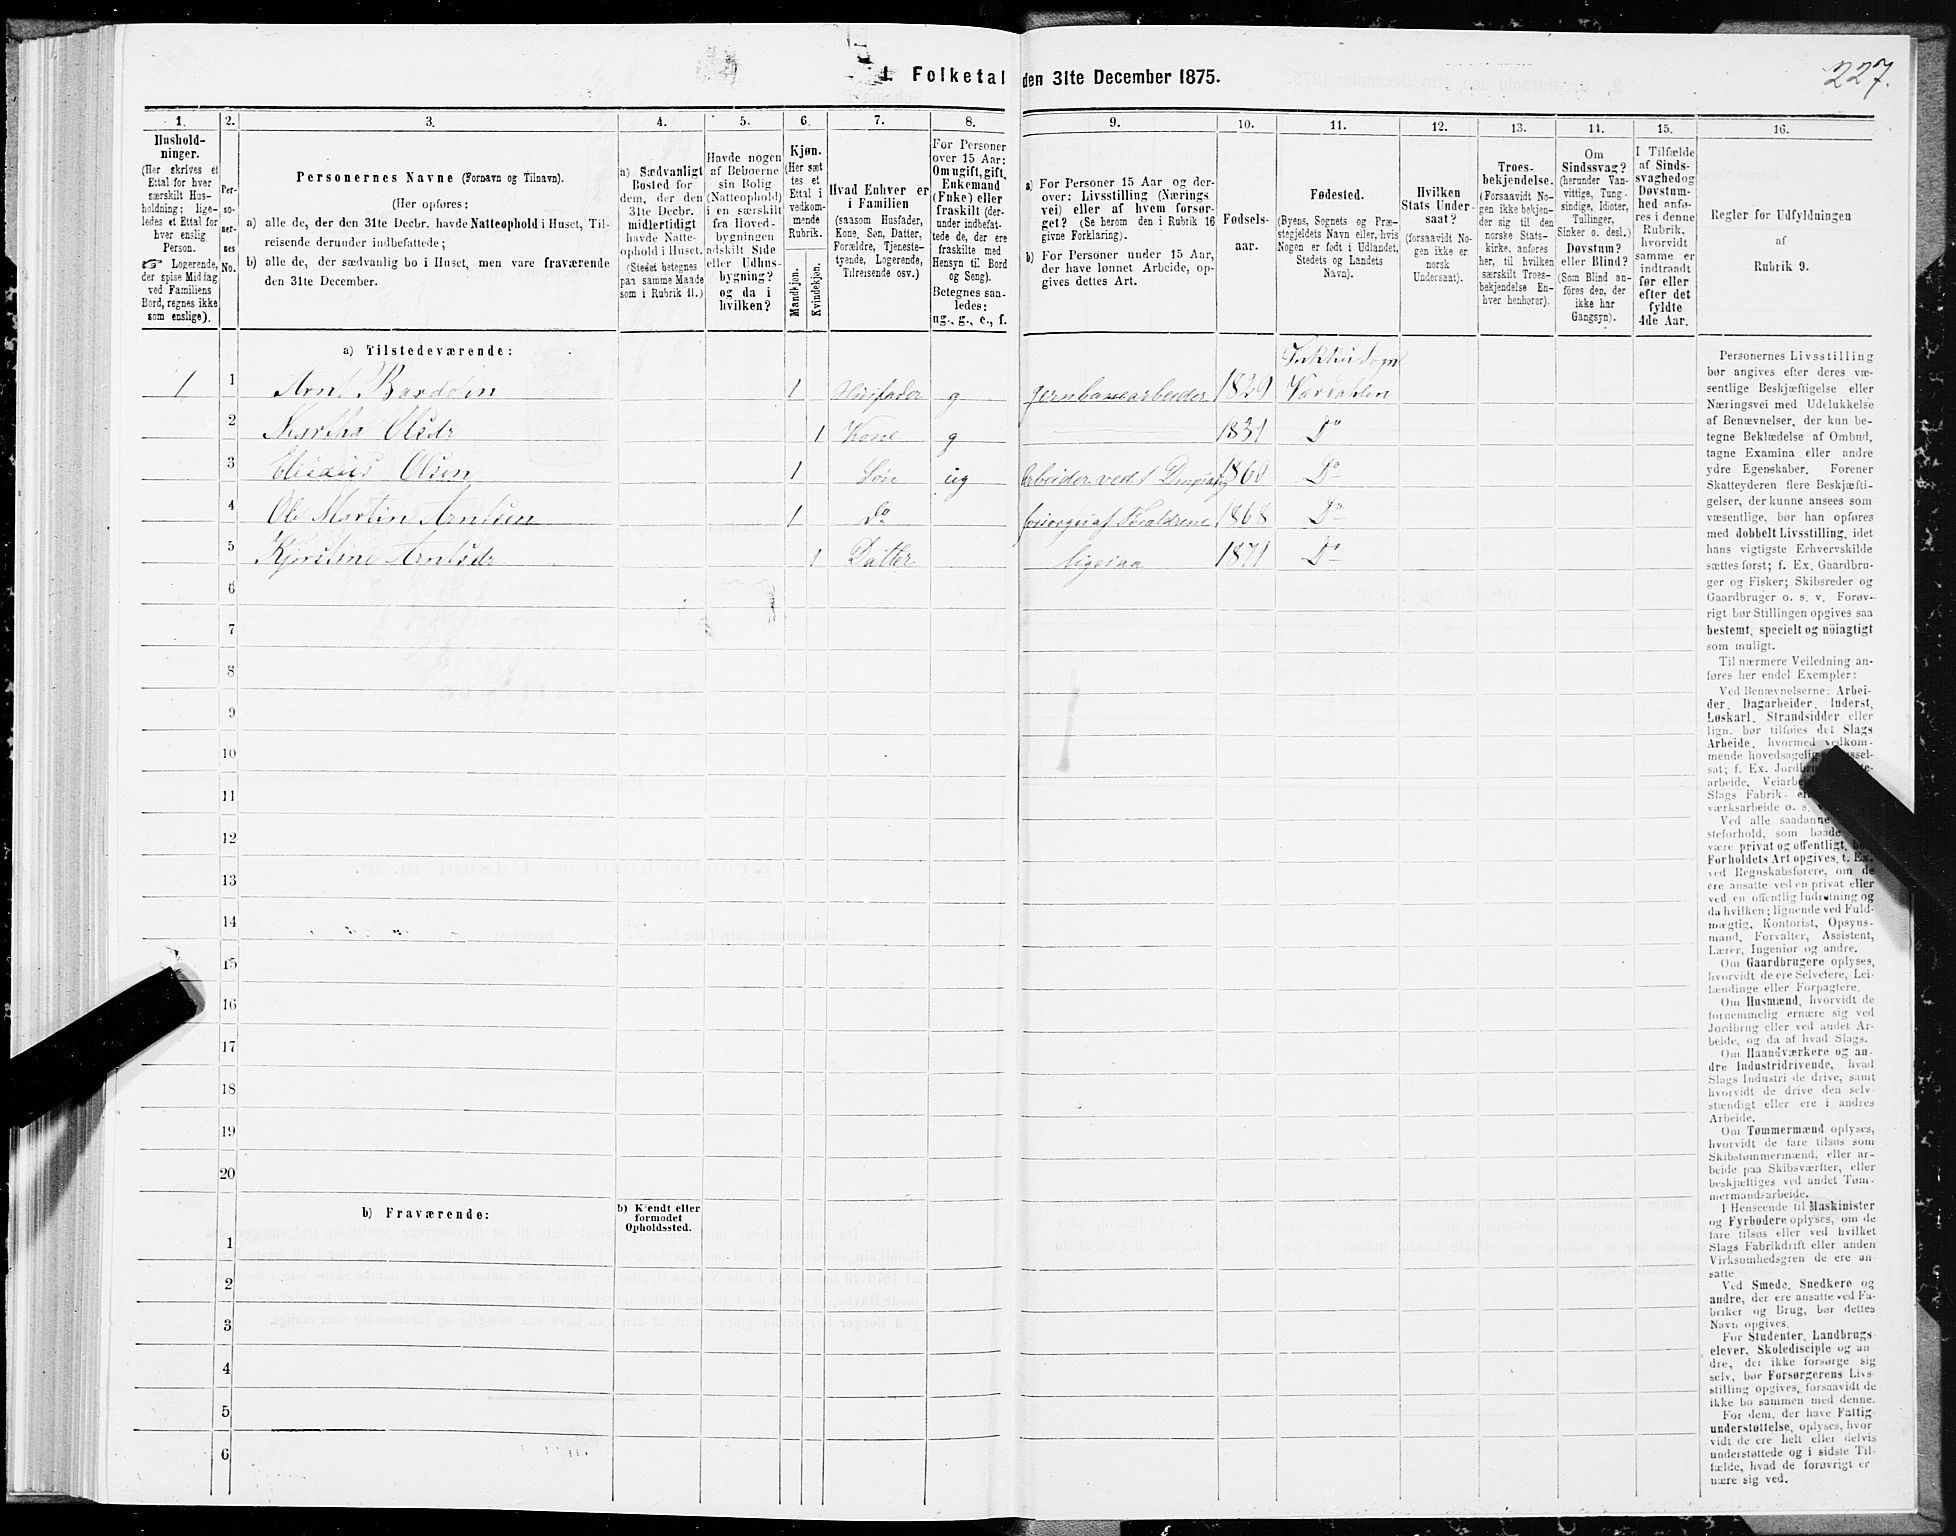 1. Folketal den 31te December 1875.
227.
1.
2.
3.
4.
5.
6.
7.
8.
9.
10.
11.
12.
13.
14.
15.
16.
Hushold-
ninger.
(Her skrives et
Ettal for hver
særskilt Hus-
holdning; lige-
ledes et Ettal for
hver enslig
Person.
☞ Logerende,
der spise Middag
ved Familiens
Bord, regnes ikke
som enslige).
Per-
so-
ner-
nes
No.
Personernes Navne (Fornavn og Tilnavn).
(Her opføres:
a) alle de, der den 31te Decbr. havde Natteophold i Huset, Til-
reisende derunder indbefattede;
b) alle de, der sædvanlig bo i Huset, men vare fraværende
den 31te December.
a) Sædvanligt
Bosted for
dem, der den
31te Decbr.
midlertidigt
havde Natte-
ophold i Huset.
(Stedet betegnes
paa samme Maade
som i Rubrik 11.)
Havde nogen
af Beboerne
sin Bolig
(Natteophold)
i en særskilt
fra Hoved-
bygningen
adskilt Side
eller Udhus-
bygning?
og da i
hvilken?
Kjøn.
(Her sæt
tes et
Ettal i
vedkom-
mende
Rubrik.
Mandkjøn.
Kvindekjøn.
Hvad Enhver er
i Familien
(saasom Husfader,
Kone, Søn, Datter,
Forældre, Tjeneste-
tyende, Logerende,
Tilreisende osv.)
For Personer
over 15 Aar:
Om ugift, gift,
Enkemand
(Enke) eller
fraskilt (der-
under indbefat-
tede de, der ere
fraskilte med
Hensyn til Bord
og Seng).
Betegnes saa-
ledes:
ug., g., e., f.
a) For Personer 15 Aar og der-
over: Livsstilling (Nærings
vei) eller af hvem forsør-
get? (Se herom den i Rubrik 16
givne Forklaring).
b) For Personer under 15 Aar,
der have lønnet Arbeide, op-
gives dettes Art.
Fødsels-
aar.
Fødested.
(Byens, Sognets og Præ-
stegjeldets Navn eller, hvis
Nogen er født i Udlandet,
Stedets og Landets
Navn).
Hvilken
Stats Under-
saat?
(forsaavidt No-
gen ikke er
norsk
Undersaat).
Troes-
bekjendelse.
(Forsaavidt No-
gen ikke bekjen-
der sig til den
norske Stats-
kirke, anføres
her, til hvilken
særskilt Troes-
bekjendelse En-
hver henhører).
Om
Sindssvag?
(herunder Van-
vittige, Tung-
sindige, Idioter,
Tullinger,
Sinker o. desl.)
Døvstum?
eller Blind?
(Som Blind an-
føres den, der
ikke har
Gangsyn).
I Tilfælde
af Sinds-
svaghed og
Døvstum-
hed anfø-
res i denne
Rubrik,
hvorvidt
samme er
indtraadt
før eller
efter det
fyldte
4de Aar.
Regler for Udfyldningen
af
Rubrik 9.
a) Tilstedeværende:
1 1 Arnt 1 Husfader g Jernbanearbeider 1829
2 Martha Olsdr 1 Kone g 1831 Do
3 Olsen 1 Søn ug Arbeider ved 1860 Do
4 Ole Martin Arntsen 1 do forsørges af Forældrene 1868 Do
5 Kjerstine Arntsdr 1 Datter ligesaa 1871 Do
6
7
8
9
10
11
12
13
14
15
16
17
18
19
20
b) Fraværende:
b) Kjendt eller
formodet
Opholdssted.
1
2
3
4
5
6
Personernes Livsstilling
bør angives efter deres væ-
sentlige Beskjæftigelse eller
Næringsvei med Udelukkelse
af Benævnelser, der kun be-
tegne Beklædelse af Ombud,
tagne Examina eller andre
ydre Egenskaber. Forener
Skatteyderen flere Beskjæfti-
gelser, der kunne ansees som
væsentlige, bør han opføres
med dobbelt Livsstilling, idet
hans vigtigste Erhvervskilde
sættes først; f. Ex. Gaardbru-
ger og Fisker; Skibsreder og
Gaardbruger o. s. v. Forøv-
rigt bør Stillingen opgives saa
bestemt, specielt og nøiagtigt
som muligt.
Til nærmere Veiledning an-
føres her endel Exempler:
Ved Benævnelserne: Arbei-
der, Dagarbeider, Inderst,
Løskarl, Strandsidder eller
lign. bør tilføies det Slags
Arbeide, hvormed vedkom-
mende hovedsagelig
sat; f. Ex.
arbeide,
Slags Fabrik-
værksarbeide o. s.
Ved alle saadanne
steforhold, som baade
være privat og offentligt,
Forholdets Art opgives, t. Ex.
ved Regnskabsførere, om de
ere ansatte ved en privat eller
ved en offentlig Indretning og
da hvilken; lignende ved Fuld-
mægtig, Kontorist, Opsyns-
mand, Forvalter, Assistent,
Lærer, Ingeniør og andre.
Om Gaardbrugere oplyses,
hvorvidt de ere Selveiere, Lei-
lændinge eller Forpagtere.
Om Husmænd, hvorvidt de
fornemmelig ernære sig ved
Jordbrug eller ved andet Ar-
beide, og da af hvad Slags.
Om Haandværkere og an-
dre Industridrivende, hvad
Slags Industri de drive, samt
hvorvidt de drive den selv-
stændigt eller ere i andres
Arbeide.
Om Tømmermænd oplyses,
hvorvidt de fare tilsøs som
Skibstømmermænd, eller ar-
beide paa Skibsværfter, eller
beskjæftiges ved andet Tøm-
mermandsarbeide.
I Henseende til Maskinister
og Fyrbødere oplyses, om de
fare tilsøs eller ved hvilket
Slags Fabrikdrift eller anden
Virksomhedsgren de ere an-
satte
Ved Smede, Snedkere og
andre, der ere ansatte ved Fa-
briker og Brug, bør dettes
Navn opgives.
For Studenter, Landbrugs-
elever, Skoledisciple og an-
dre, der ikke forsørge sig
selv, bør Forsørgerens Livs-
stilling opgives, forsaavidt de
ikke bo sammen med denne.
For dem, der have Fattig-
understøttelse, oplyses, hvor-
vidt de ere helt eller delvis
understøttede og i sidste Til-
fælde, hvad de forøvrigt er
nære sig ved.